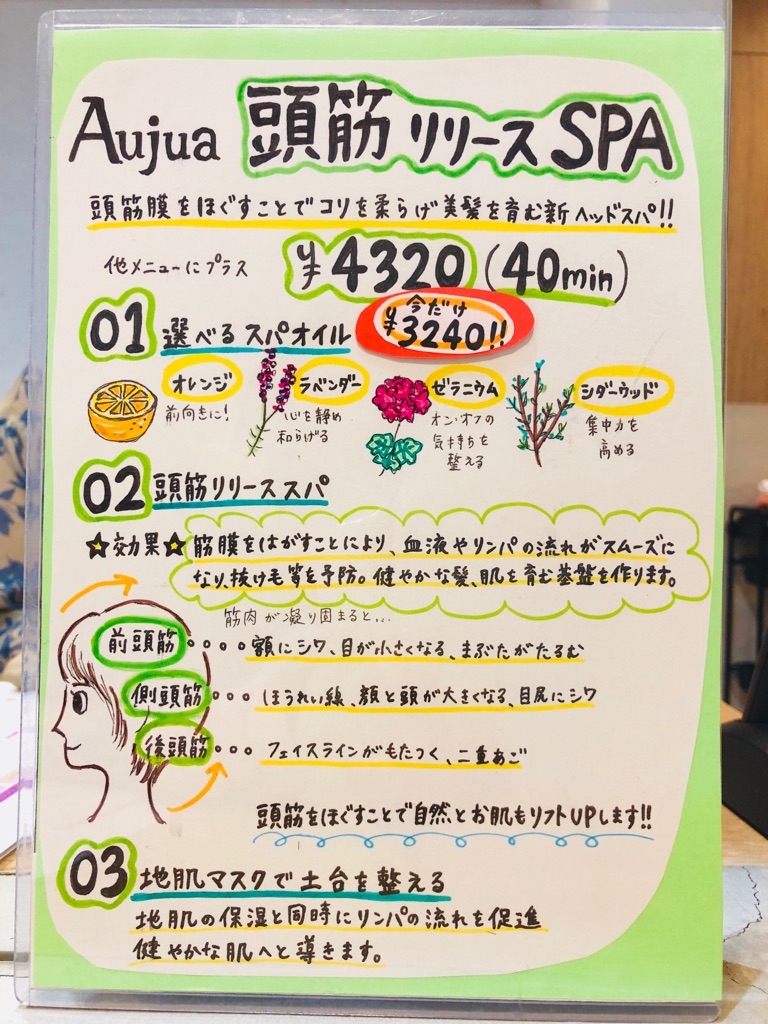 Aujua 頭筋リリースSPA
頭筋膜をほぐすことでコリを柔らげ美髪を育む新ヘッドスパ!!
他メニューにプラス ¥4320(40min)
今だけ
¥3240!!
01 選べるスパオイル
オレンジ
前向きに!
ラベンダー
心を静め
和らげる
ゼラニウム
オン・オフの
気持ちを
整える
シダーウッド
集中力を
高める
02 頭筋リリーススパ
★効果★ 筋膜をはがすことにより、血液やリンパの流れがスムーズに
なり、抜け毛等を予防。健やかな髪、肌を育む基盤を作ります。
筋肉が凝り固まると...
前頭筋 •••• 額にシワ、目が小さくなる、まぶたがたるむ
側頭筋 ••• ほうれい線、顔と頭が大きくなる、目尻にシワ
後頭筋 ••• フェイスラインがもたつく、二重あご
頭筋をほぐすことで自然とお肌もリフトUPします!!
03 地肌マスクで土台を整える
地肌の保湿と同時にリンパの流れを促進
健やかな肌へと導きます。